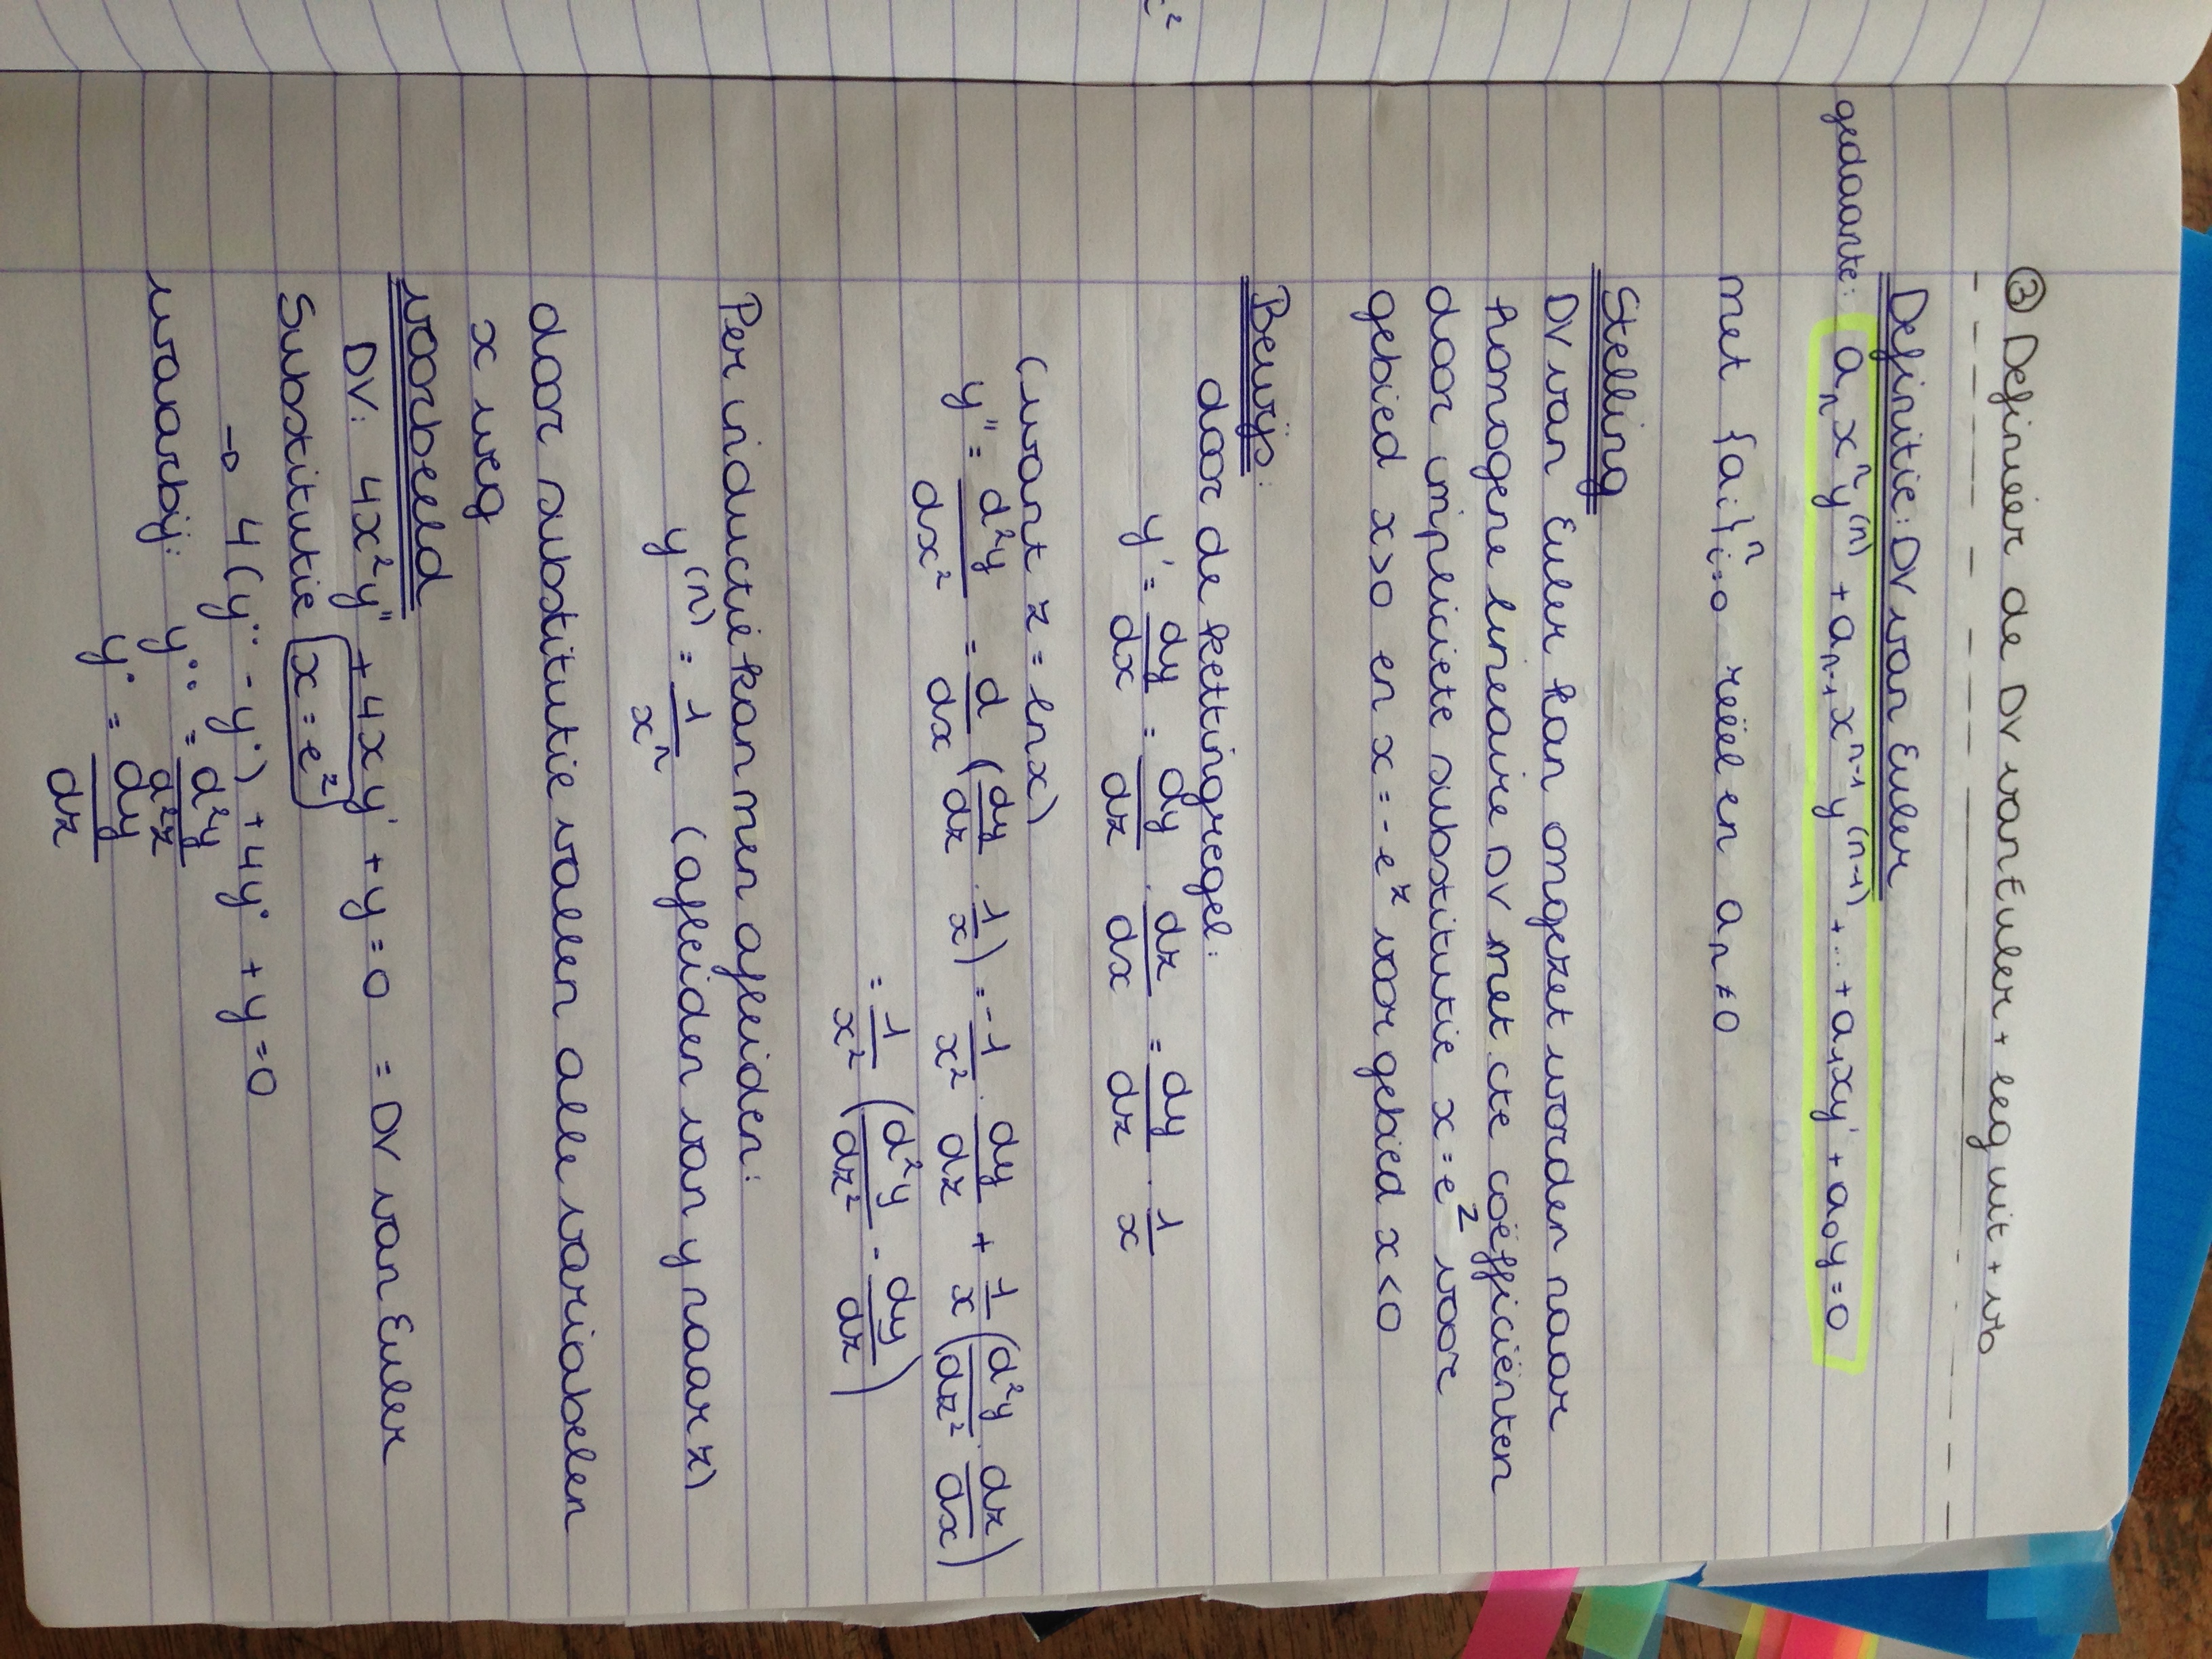 ③ Definieër de DV van Euler + leg uit + vb
Definitie: DV van Euler
gedaante: aₙxⁿy⁽ⁿ⁾ + aₙ₋₁xⁿ⁻¹y⁽ⁿ⁻¹⁾ + ... + a₁xy' + a₀y = 0
met {aᵢ}ⁿᵢ₌₀ reëel en aₙ ≠ 0
Stelling
DV van Euler kan omgezet worden naar
homogene lineaire DV met cte coëfficiënten
door impliciete substitutie x = e^z voor
gebied x > 0 en x = -e^z voor gebied x < 0
Bewijs:
door de kettingregel:
y' = dy/dx = dy/dz · dz/dx = dy/dz · 1/x
(want z = ln x)
y'' = d²y/dx² = d/dx (dy/dz · 1/x) = -1/x² · dy/dz + 1/x (d²y/dz² · dz/dx)
= 1/x² (d²y/dz² - dy/dz)
Per inductie kan men afleiden:
y⁽ⁿ⁾ = 1/xⁿ (afleiden van y naar z)
door substitutie vallen alle variabelen
x weg
voorbeeld
DV: 4x²y'' + 4xy' + y = 0 = DV van Euler
Substitutie x = e^z
→ 4(y·· - y·) + 4y· + y = 0
waarbij: y·· = d²y/d²z
y· = dy/dz